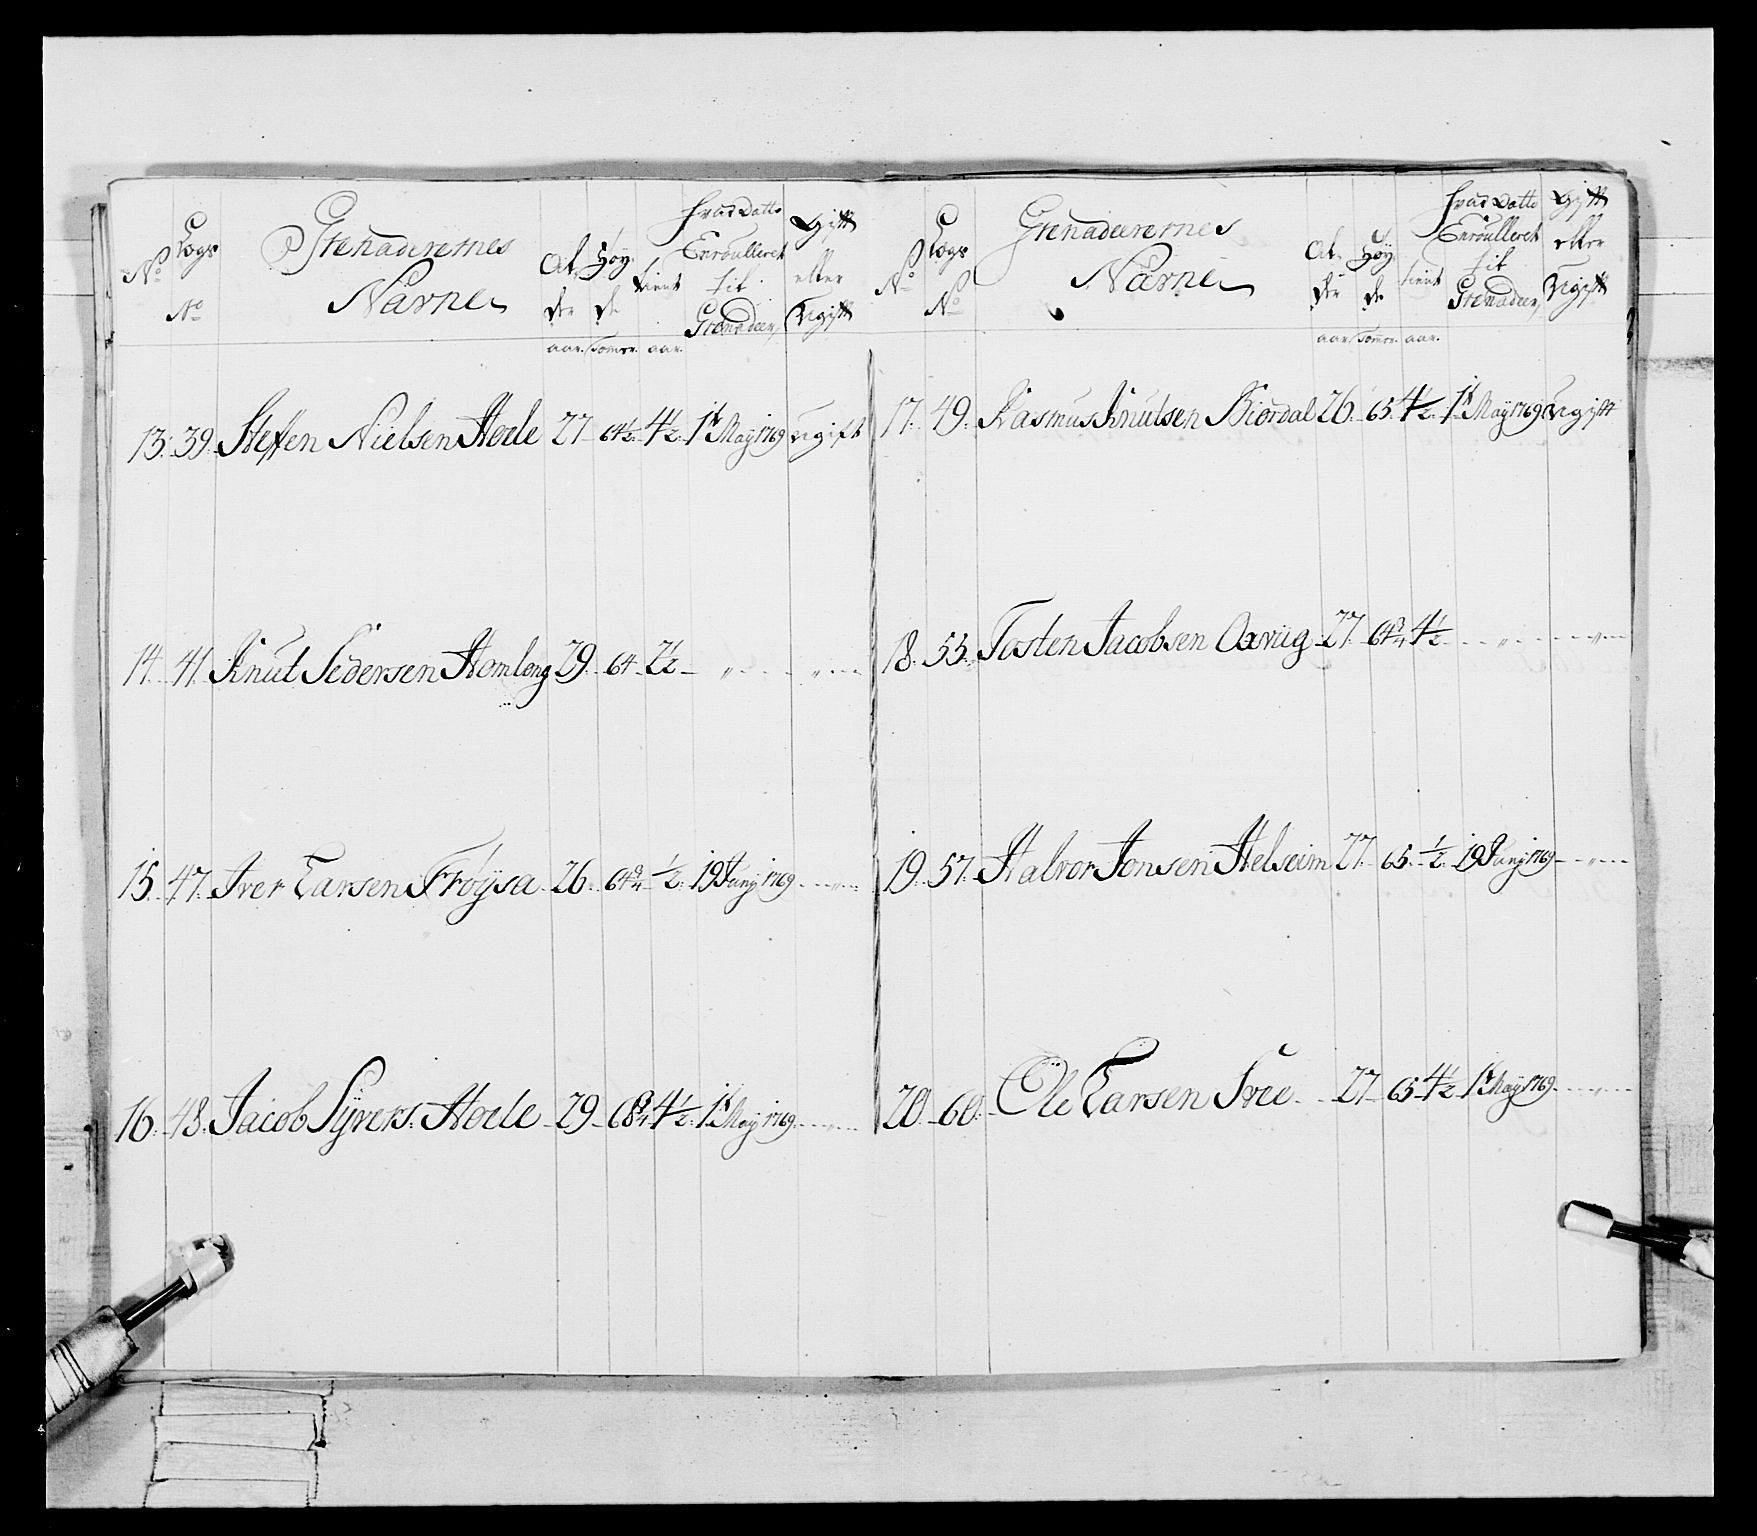 No Lægs No Grenadeerernes Navne Alder Høyde tient hvad Datto Enroulleret til Grenadeer, Gift eller Ugift
aar. Tomer. aar.
13. 39. Steffen Nielsen Hoele 27 64½. 4½. 1t May 1769 ugift
14. 41. Knut Pedersen Homlong 29. 64. 2½ „ „
15. 47. Iver Larsen Frøysa 26. 64¾ ½. 19 Juny 1769 „
16. 48. Jacob Syvers. Hoele 29 68¾ 4½. 1t May 1769. „
No Lægs No Grenadeerernes Navne Alder Høyde tient hvad Datto Enroulleret til Grenadeer, Gift eller Ugift
aar Tomer. aar.
17. 49. Rasmus Knutsen Biordal 26. 65. 4½. 1t May 1769 Ugift
18. 53. Tosten Jacobsen Oxvug 27. 64¾ 4½ „ „
19. 57. Halvor Jonsen Helseim 27. 65. ½. 19 Juny 1769 „
20. 60. Ole Larsen Svee 27 65 4½ 1t May 1769. „